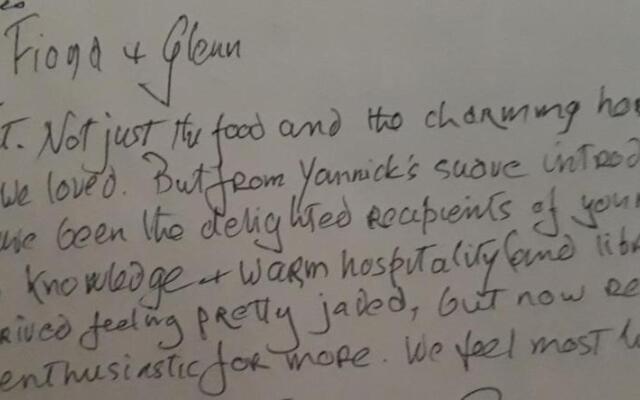 Fiona + Glenn
T. Not just the food and the charming ho
we loved. But from Yannick's suave introd
ave been the delighted recipients of your
knowledge + warm hospitality (and lib
rived feeling pretty jaded, but now re
enthusiastic for more. We feel most